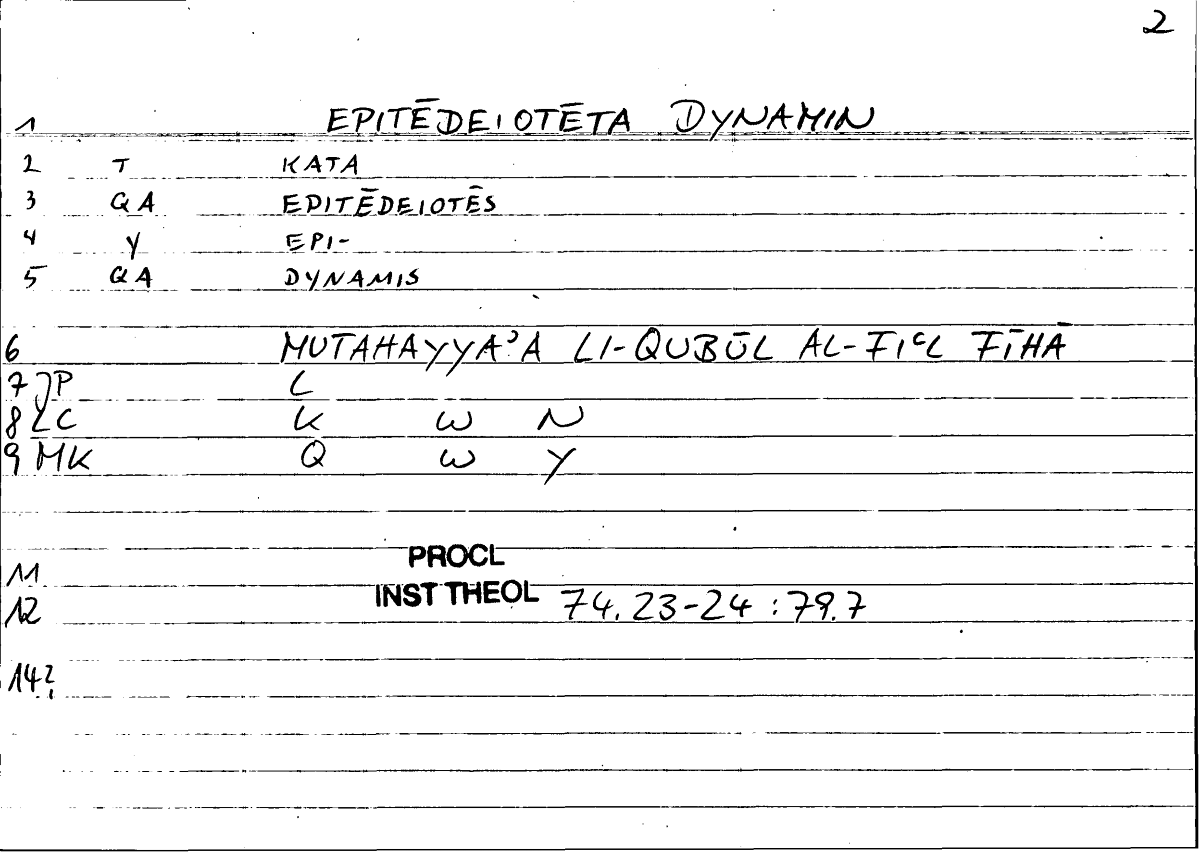 2
1 EPITĒDEIOTĒTA DYNAMIN
2 T KATA
3 QA EPITĒDEIOTĒS
4 Y EPI-
5 QA DYNAMIS
6 MUTAHAYYAʾA LI-QUBŪL AL-FIʿL FĪHĀ
7 JP L
8 LC K W N
9 MK Q W Y
PROCL
11
INST THEOL 74.23-24 : 79.7
12
14?